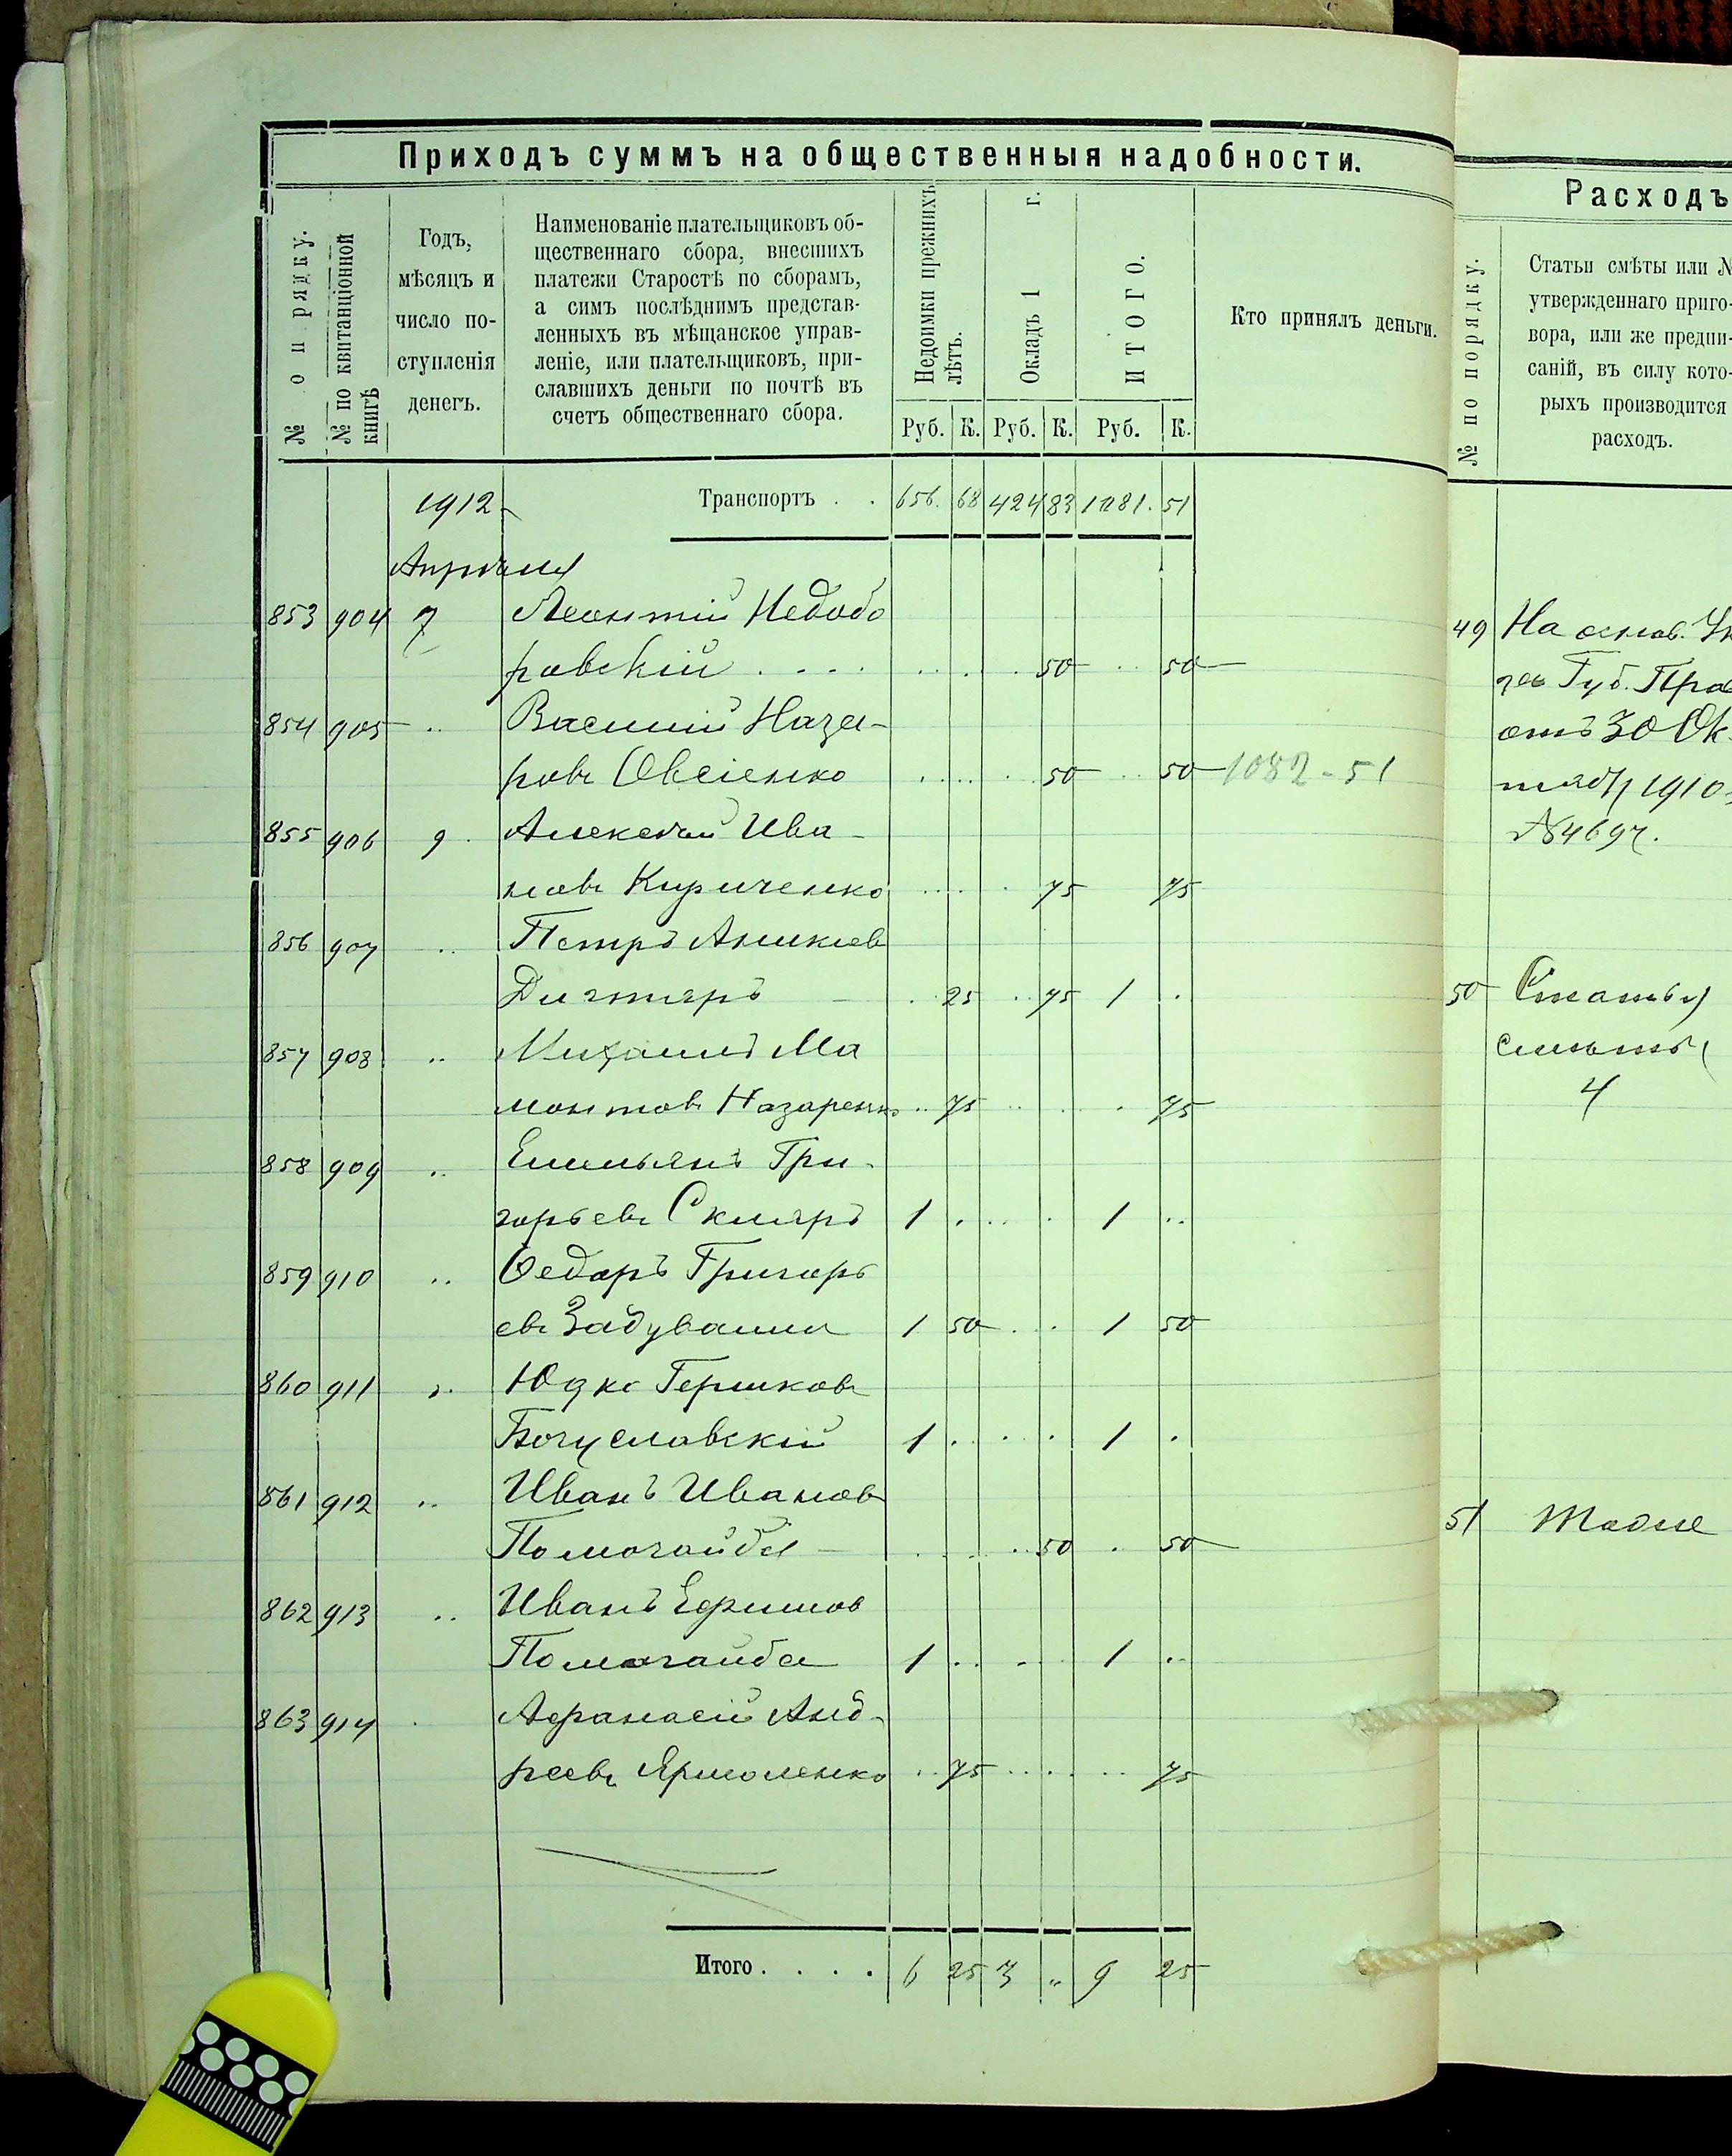 Приходъ суммъ на общественныя надобности.
№ по рядку.
№ по квитанціонной книгѣ
Годъ, мѣсяцъ и число поступленія денегъ.
Наименованіе плательщиковъ об-
щественнаго сбора, внесшихъ
платежи Старостѣ по сборамъ,
а симъ послѣднимъ представ-
ленныхъ въ мѣщанское управ-
леніе, или плательщиковъ, при-
славшихъ деньги по почтѣ въ
счетъ общественнаго сбора.
Недоимки прежнихъ лѣтъ.
Окладъ 1 г.
ИТОГО.
Кто принялъ деньги.
Руб. К. Руб. К. Руб. К.
1912 Транспортъ . . 656. 68 424 83 1081. 51
Апрѣля
853 904 7 Леонтій Недобо
ровскій . . . . 50 50
854 905 " Василій Наза-
ровъ Овсіенко 50 50 1082-51
855 906 9 Алексѣй Ива-
новъ Кириченко 75 75
856 907 " Петръ Аникіев
Дигтяръ 25 75 1
857 908 " Михаилъ Ма
монтов Назаренко 75 75
858 909 " Емельянъ Гри-
горьевъ Скляръ 1 1
859 910 " Ѳедоръ Григорь
евъ Задувайло 1 50 1 50
860 911 " Юдко Гершковъ
Богуславскій 1 1
861 912 " Иванъ Иванов
Помогайба 50 50
862 913 " Иванъ Ефимов
Помогайба 1 1
863 914 Афанасій Анд-
реевъ Ярмоленко 75 75
Итого . . . . 6 25 3 " 9 25
Расходъ
№ по порядку.
Статьи смѣты или №
утвержденнаго приго-
вора, или же предпи-
саній, въ силу кото-
рыхъ производится
расходъ.
49 На основ. Ук
за Губ. Прав
отъ 30 Ок-
тября 1910
№4697.
50 Статья
смѣты
4
51 Тоже